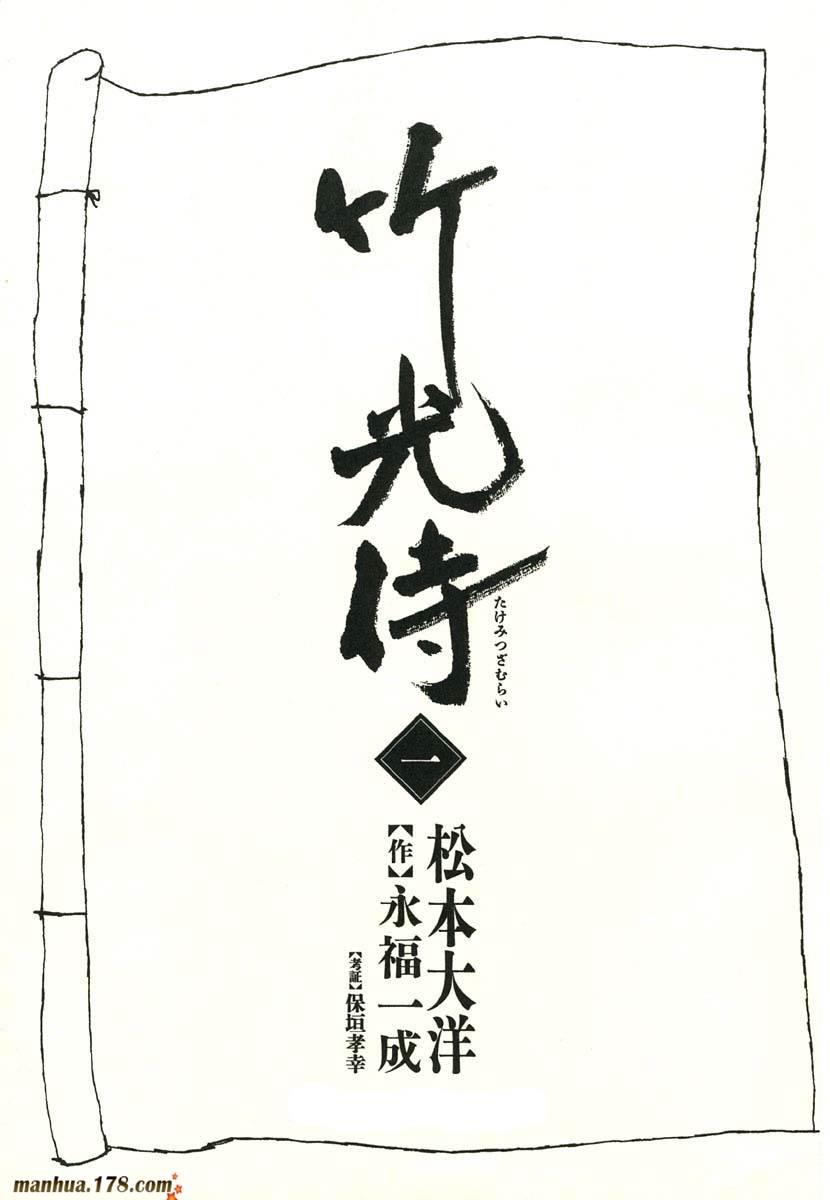 竹光侍
たけみつざむらい
一
松本大洋
【作】永福一成
【考証】保垣孝幸
manhua.178.com